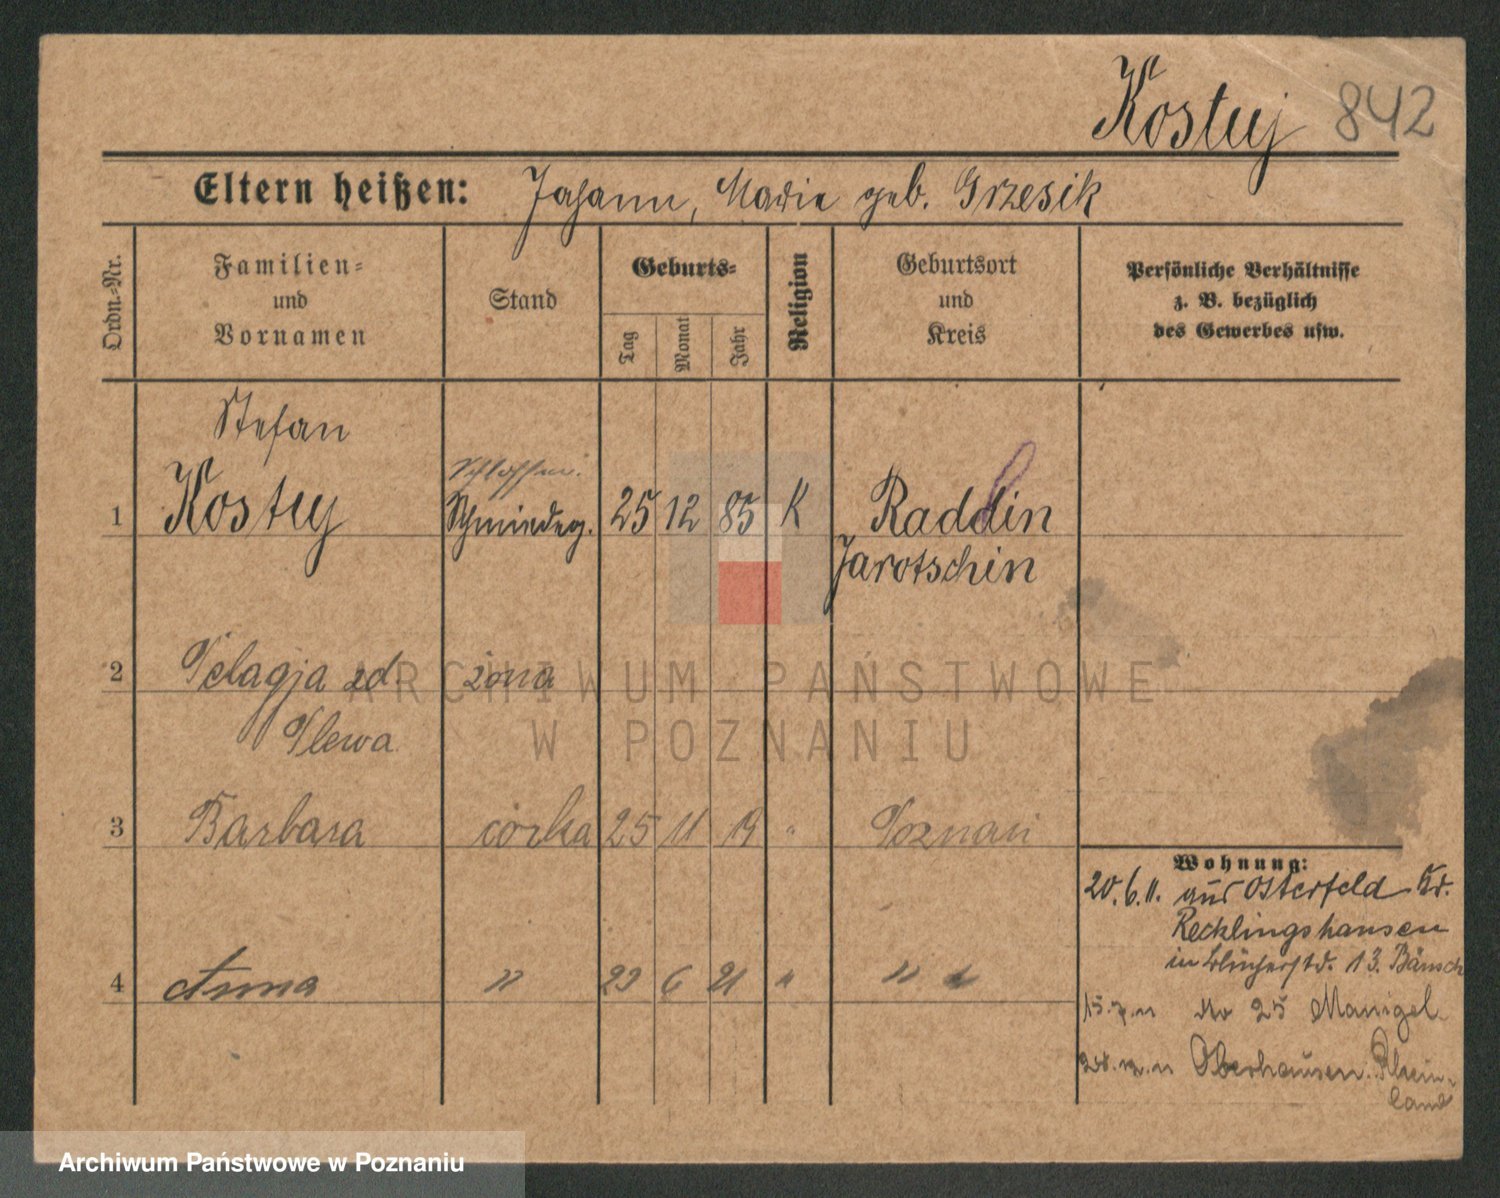 Kostuj 842
Eltern heißen: Johann, Marie geb. Grzesik
Ordn.-Nr.
Familien-
und
Vornamen
Stand
Geburts-
Tag
Monat
Jahr
Religion
Geburtsort
und
Kreis
Persönliche Verhältnisse
z. B. bezüglich
des Gewerbes usw.
Stefan
1 Kostuj Schmiedeg. 25 12 85 K Raddin
Jarotschin
2 Pelagja zd żona
Plewa
3 Barbara córka 25 11 19 " Poznań
Wohnung:
20.6.11. aus Osterfeld Kr.
Recklingshausen
13. Bänsch
4 Anna " 6 21 " "
No 25 Manigel
Oberhausen. Rhein-
land
ARCHIWUM PAŃSTWOWE
W POZNANIU
Archiwum Państwowe w Poznaniu